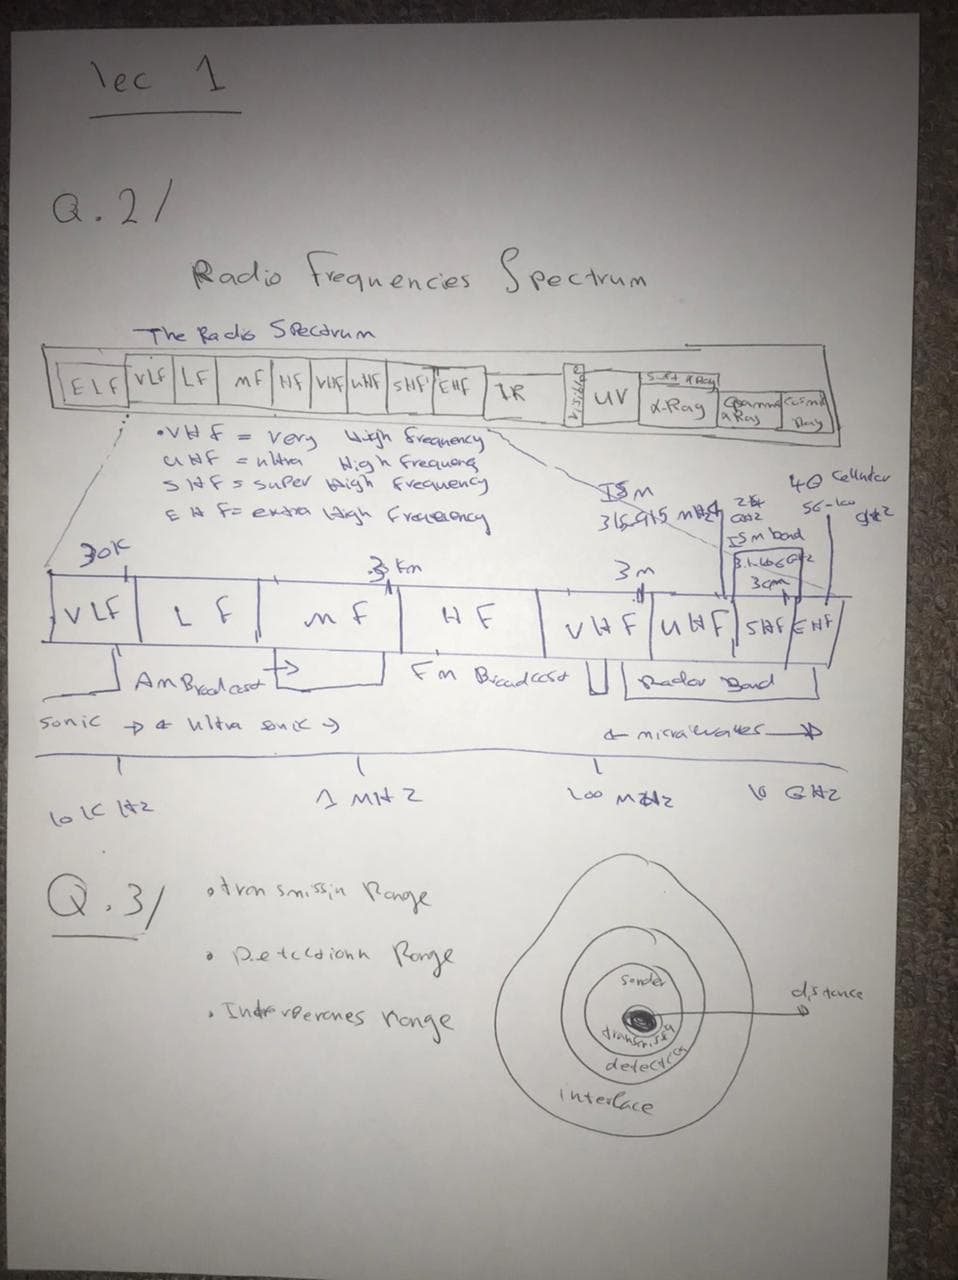 lec 1
Q.2/
Radio Frequencies Spectrum
The Radio Spectrum
ELF VLF LF MF HF VHF UHF SHF EHF IR UV Soft X Ray X-Ray Gamma Ray Cosmic Ray
• VHF = Very High frequency
UHF = ultra High frequenc
SHF = super High frequency
EHF = extra High frequency
ISM
315-915 MHz
2.4
GHz
ISM band
4G Cellular
56-100
GHz
30K 3 Km 3m 3cm
VLF LF MF HF VHF UHF SHF EHF
AM Broadcast FM Broadcast Radar Band
Sonic → ← Ultra sonic → ← microwaves →
10K HZ 1 MHZ 100 MHz 10 GHZ
Q.3/
• transmissin Range
• Detectionn Range
• Interverences range
sender
transmissn
detection
interface
distance